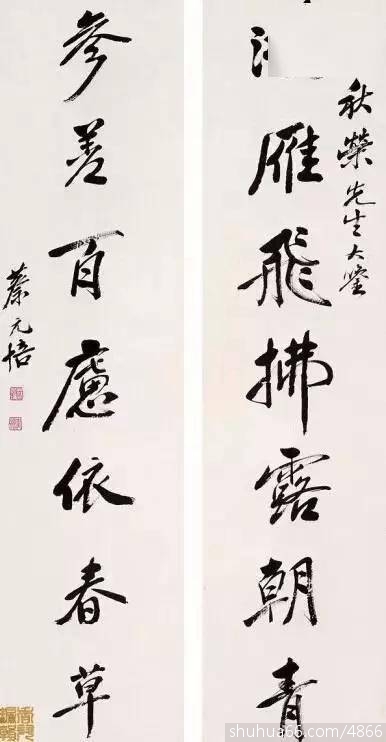 秋榮先生大鑒
雁飛拂露朝青
參差百慮依春草
蔡元培
shuhua66.com/4866